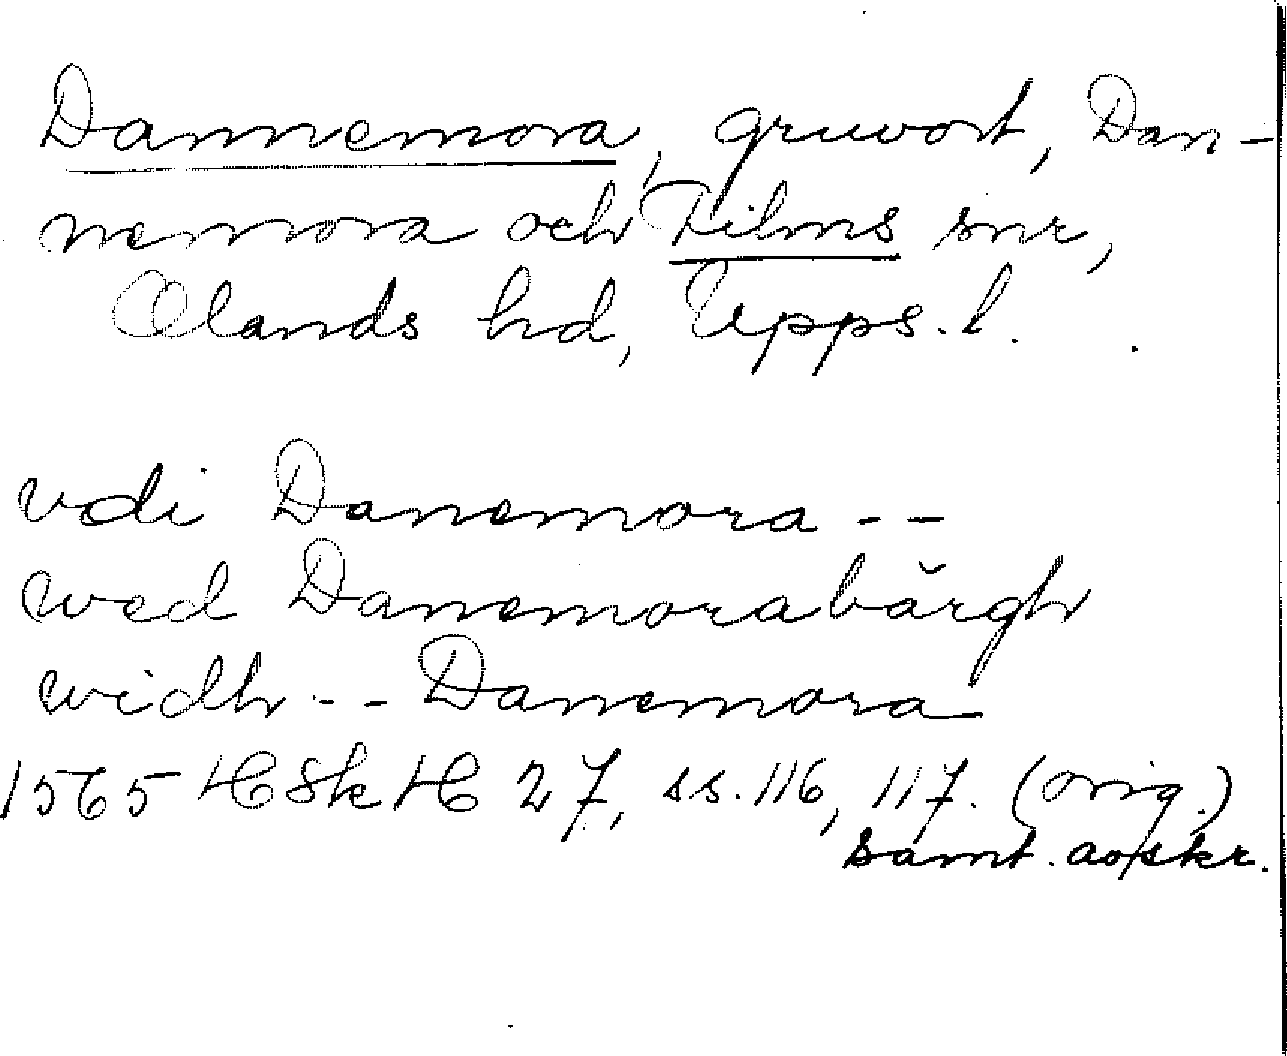 Dannemora, gruvort, Dan-
nemora och Films snr,
Olands hd, Upps. l.
vdi Danemora --
wed Danemorabărgh
widh -- Danemora
1565 HSkH 27, ss. 116, 117. (orig.)
samt. avskr.